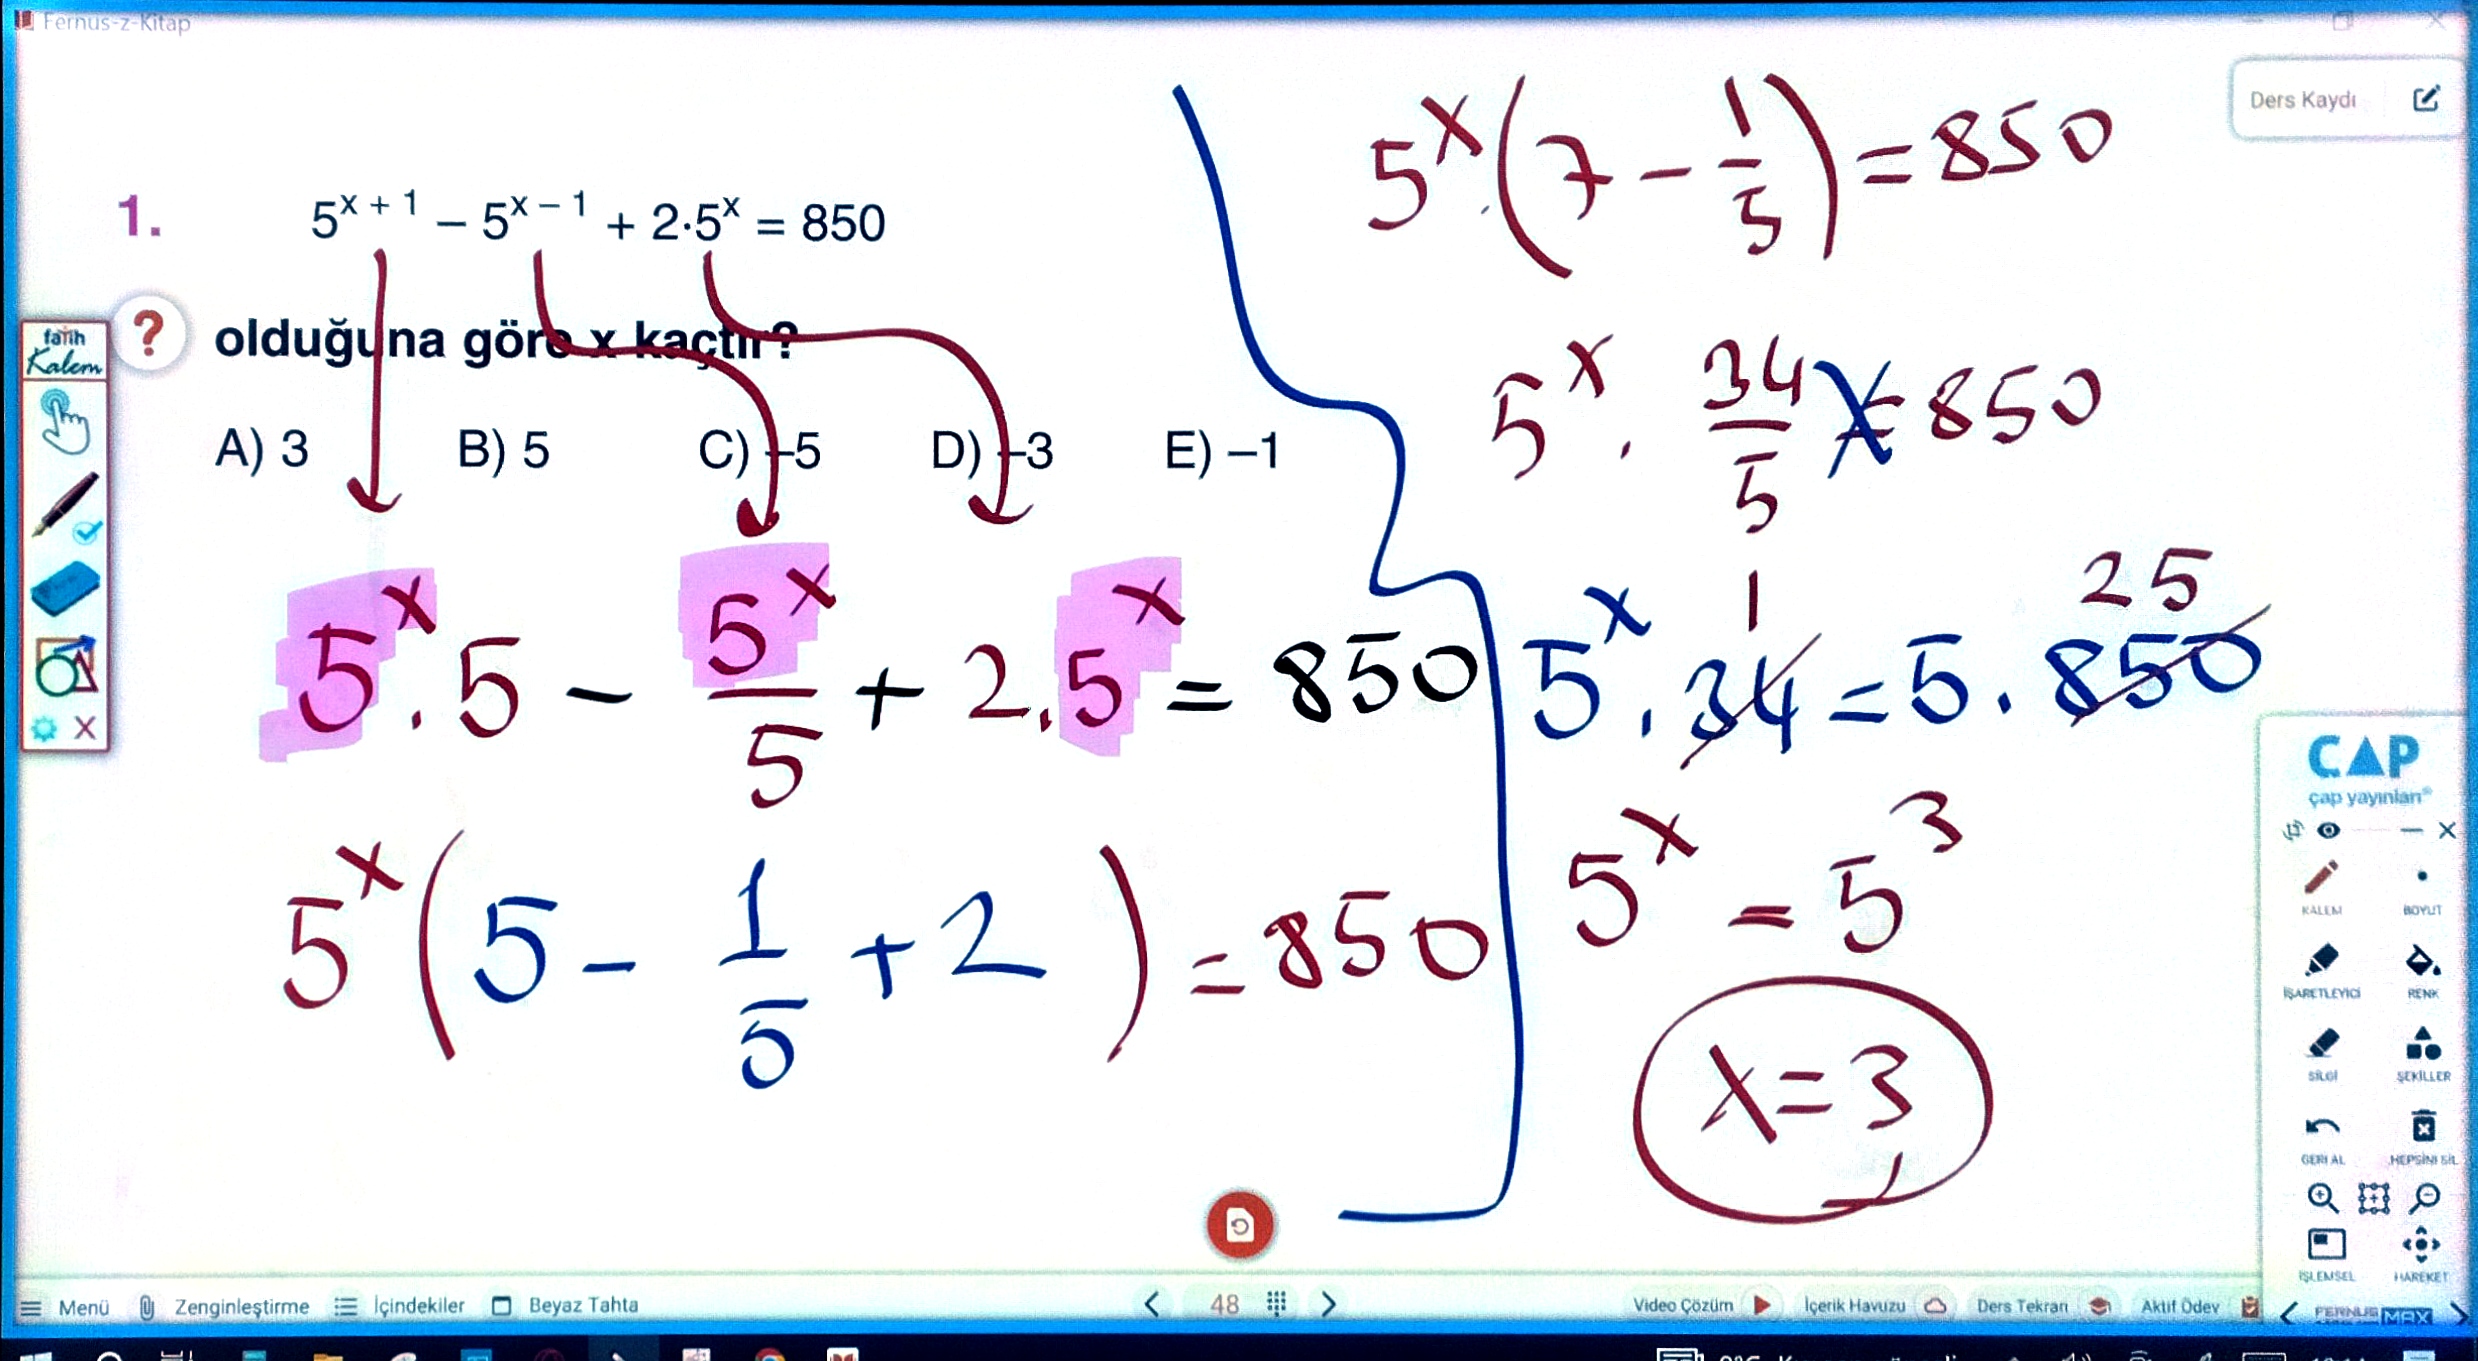 Fernus-z-Kitap
Ders Kaydı
1. 5^{x + 1} – 5^{x – 1} + 2·5^x = 850
? olduğuna göre x kaçtır?
A) 3 B) 5 C) –5 D) –3 E) –1
5^x . 5 – 5^x/5 + 2.5^x = 850
5^x (5 – 1/5 + 2) = 850
5^x . (7 – 1/5) = 850
5^x . 34/5 = 850
1 25
5^x . 34 = 5 . 850
5^x = 5^3
x = 3
fatih
Kalem
ÇAP
çap yayınları
KALEM BOYUT
İŞARETLEYİCİ RENK
SİLGİ ŞEKİLLER
GERİ AL HEPSİNİ SİL
İŞLEMSEL HAREKET
FERNUS MAX
Menü Zenginleştirme İçindekiler Beyaz Tahta 48 Video Çözüm İçerik Havuzu Ders Tekrarı Aktif Ödev